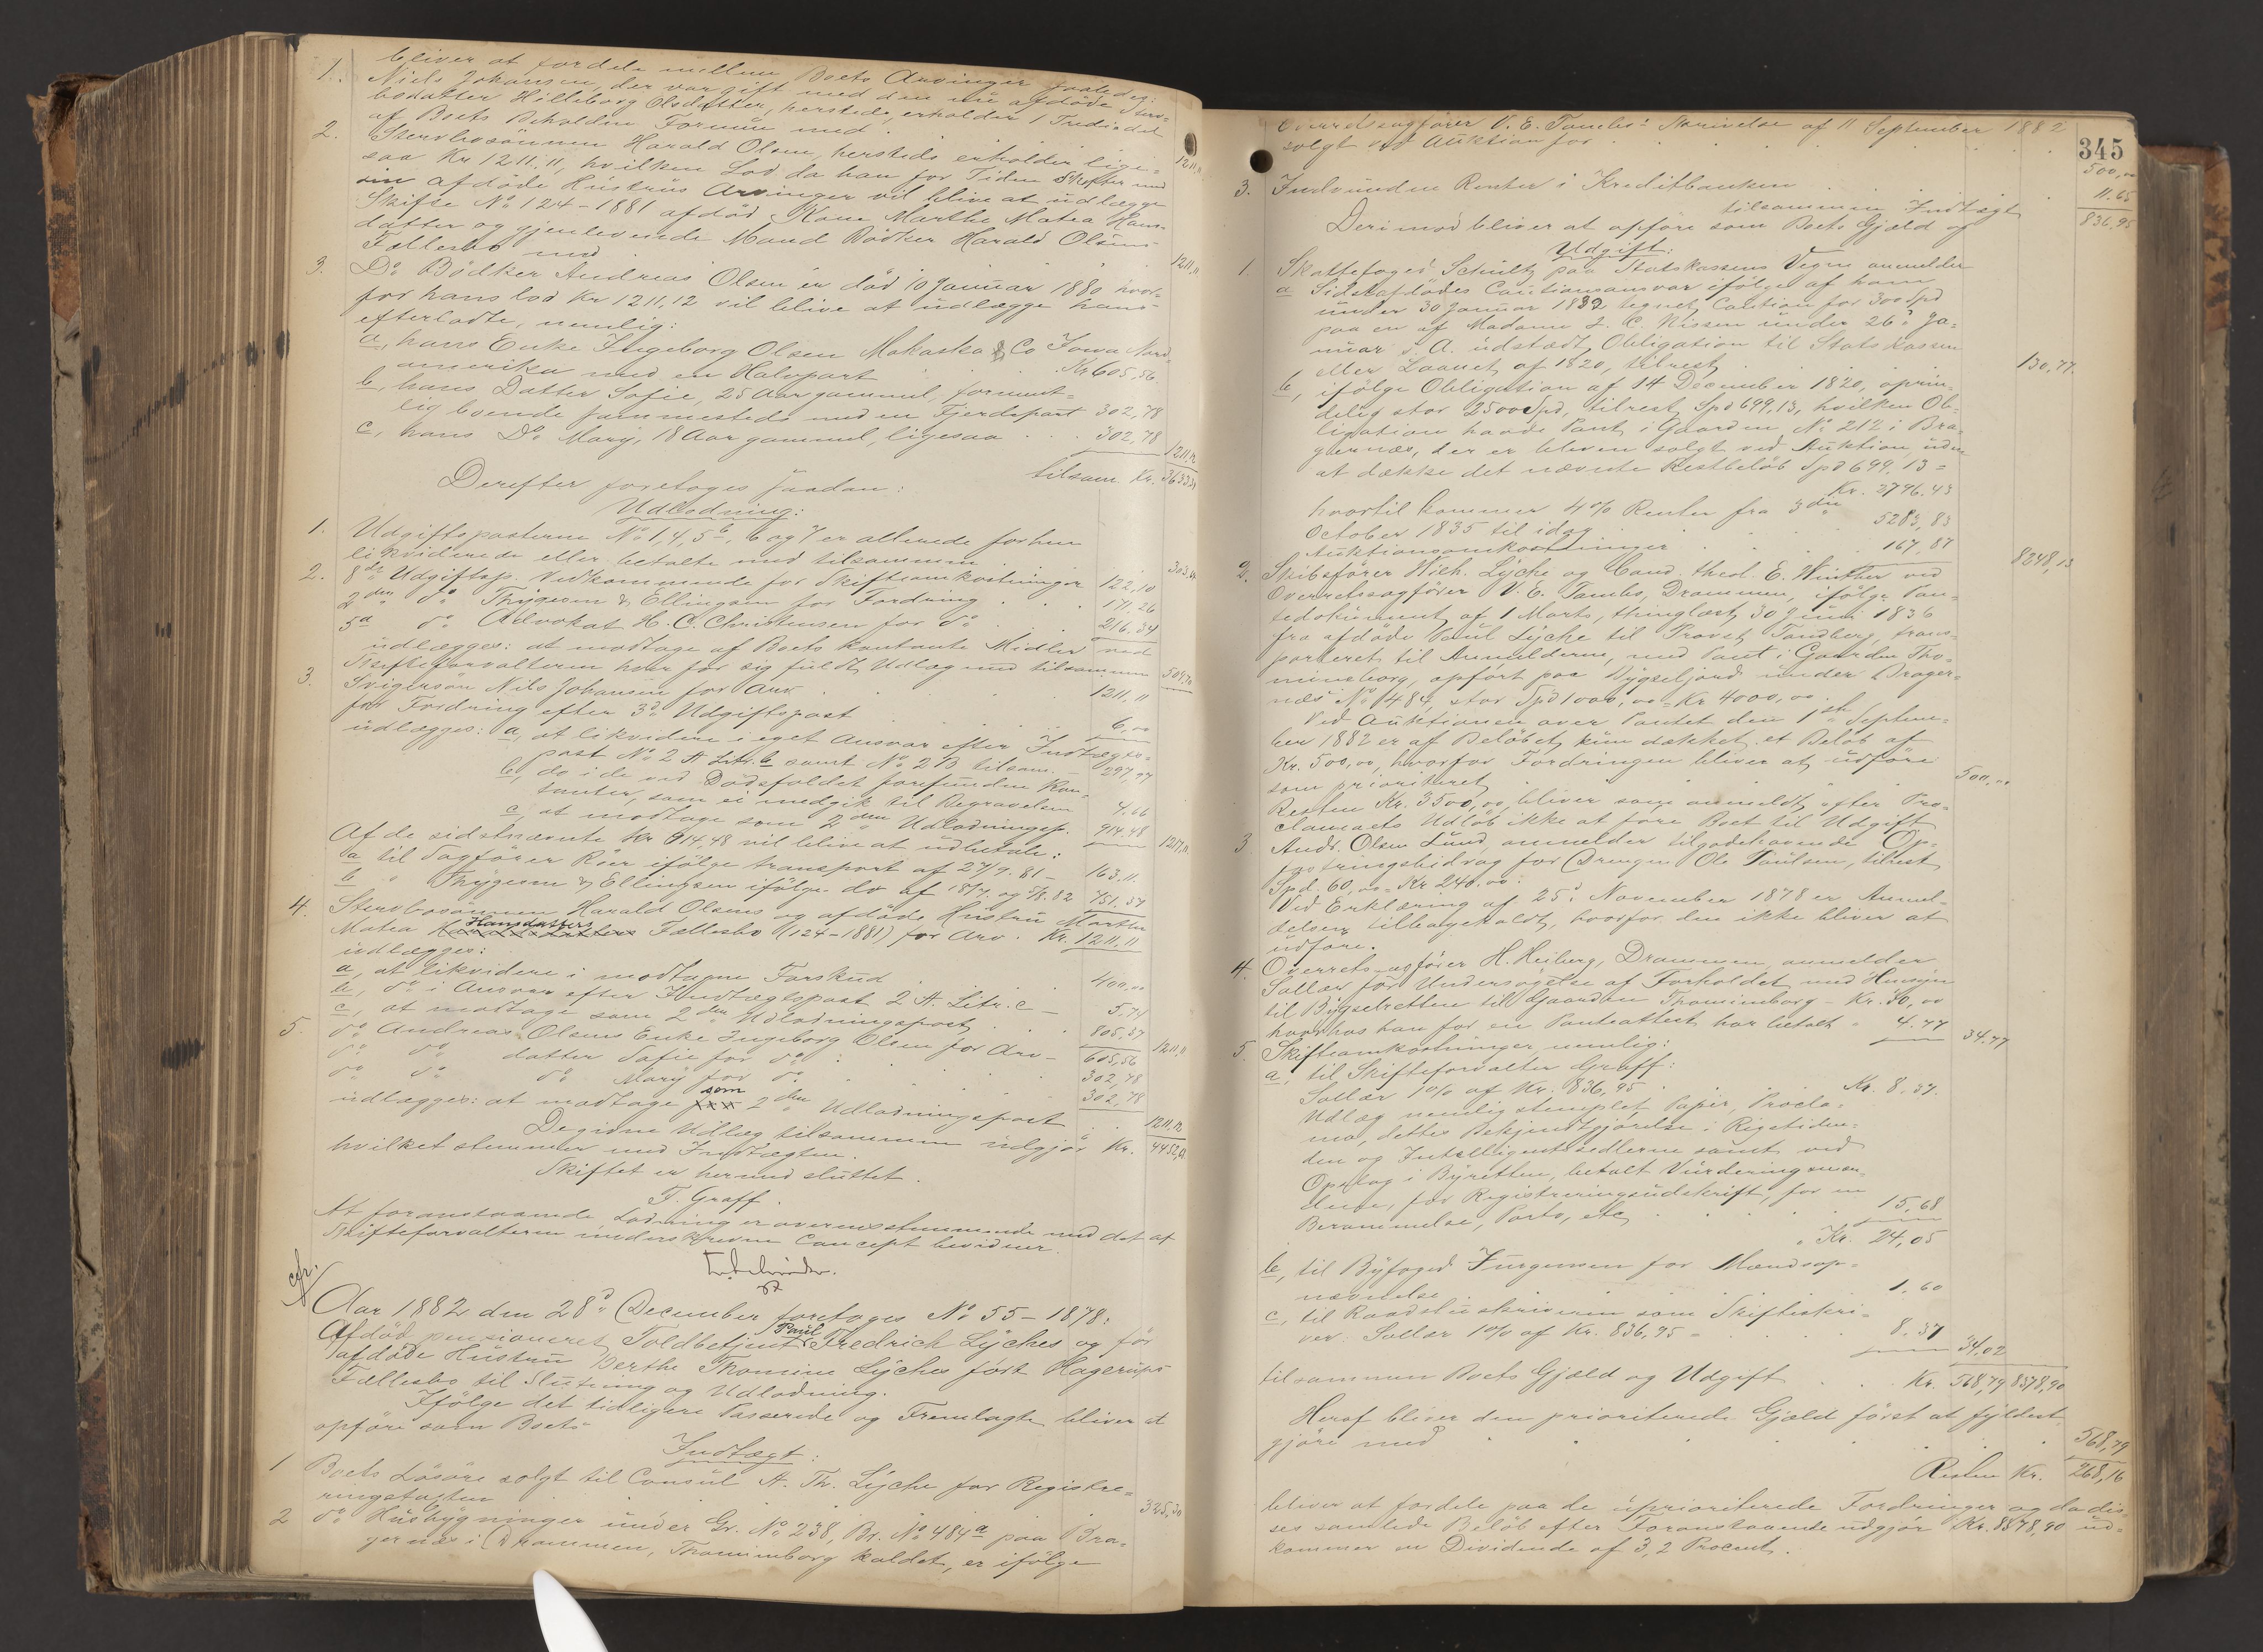 1. bliver at fordele mellem Boets Arvinger saaledes:
Niels Johansen, der var gift med den nu afdöde Sterv-
bodatter Hilleborg Olsdatter, hersteds, erholder 1 Trediedel
af Boets Beholdne Formue med 1211,11
2. Stervbosönnen Harald Olsen, hersteds erholder lige-
saa Kr 1211.11, hvilken Lod da han for Tiden skifter med
sin afdöde Hustrus Arvinger vil blive at udlægge
Skifte No 124-1881 afdöd Kone Marthe Matea Hans-
datter og gjenlevende Mand Bödker Harald Olsens
Fællesbo med 1211,11
3. Do Bödker Andreas Olsen er död 10 Januar 1880 hvor-
for hans lod Kr 1211,12 vil blive at udlægge hans
efterladte, nemlig:
a, hans Enke Ingeborg Olsen Mahaska Co Iowa Nord-
amerika med en Halvpart Kr 605,56
b, hans Datter Sofie, 25 Aar gammel, forment-
lig boende sammesteds med en Fjerdepart 302,78
c, hans Do Mary, 18 Aar gammel, ligesaa 302,78 1211,12
tilsam. Kr. 3633,34
Derefter foretoges saadan:
Udlodning:
1. Udgiftsposterne No 1, 4, 5b, 6 og 7 er allerede forhen
likviderede eller betalte med tilsammen 303,64
2. 8de Udgiftsp. Vedkommende for Skifteomkostninger 122,10
2den " do Thygesen & Ellingsen for Fordring 171,26
5a do Advokat H. C. Christensen for do 216,34
udlægges: at modtage af Boets kontante Midler ved
Skifteforvalteren hver for sig fuldt Udlæg med tilsammen 509,70
3. Svigersön Nils Johansen for Arv 1211,11
for Fordring efter 3de Udgiftspost 6,00
udlægges: a, at likvidere i eget Ansvar efter Indtægts-
post No 2 A Litr. b samt No 2 B tilsam. 297,97
b, do i de ved Dödsfaldet forefundne Kon-
tanter, som ei medgik til Begravelsen 4,66
c, at modtage som 2den Udlodningsp. 914.48 1217,11
Af de sidstnævnte Kr 914,48 vil blive at udbetale:
a til Sagförer Roer ifölge transport af 27/7. 81 - 163.11.
b " Thygesen & Ellingsen ifölge do af 18/7. og 5/8. 82 751.37
4. Stervbosönnen Harald Olsens og afdöde Hustru Marthe
Matea Hansdatters Fællesbo (124-1881) for Arv. Kr. 1211.11
udlægges:
a, at likvidere i modtagne Forskud 400,00
b, do i Ansvar efter Indtægtspost 2 A. Litr. c - 5.74
c, at modtage som 2den Udlodningspost 805,37 1211,11
5. do Andreas Olsens Enke Ingeborg Olsen for Arv - 605,56
do do datter Sofie for do 302,78
do do do Mary for do 302,78
udlægges: at modtage som 2den Udlodningspost 1211,12
De givne Udlæg tilsammen udgjör Kr. 4452,68
hvilket stemmer med Indtægten.
Skiftet er hermed sluttet.
F. Graff.
At foranstaaende Lodning er overensstemmende med det af
Skifteforvalteren underskrevne Concept bevidner.
cfr.
Aar 1882 den 28de December foretoges No 55-1878:
Afdöd pensioneret Toldbetjent Paul Fredrich Lyches og för
afdöde Hustru Berthe Thomine Lyches födt Hagerups
Fællesbo til Slutning og Udlodning.
Ifölge det tidligere Passerede og Fremlagte bliver at
opföre som Boets
Indtægt:
1 Boets Lösöre solgt til Consul A. Th. Lyche for Registre-
ringstaxten 325,30
2 do Husbygninger under Gr. No 238, Br. No 484a paa Bra-
gernæs i Drammen, Thomineborg kaldet, er ifölge
345
Overretssagförer V. E. Tambs' Skrivelse af 11 September 1882
solgt ved Auktion for 500,00
3. Indvundne Renter i Kreditbanken 11.65
tilsammen Indtægt 836,95
Derimod bliver at opföre som Boets Gjæld og
Udgift:
1. Skattefoged Schultz paa Statskassens Vegne anmelder
a Sidstafdödes Cautionsansvar ifölge af ham
under 30 Januar 1832 tegnet Caution for 300 Spd
paa en af Madame L. C. Nissen under 26de Ja-
nuar s. A. udstædt Obligation til Statskassen
eller Laanet af 1820, tilrest 130,77.
b, ifölge Obligation af 14 December 1820, oprin-
delig stor 2500 Spd, tilrest Spd 699,13, hvilken Ob-
ligation havde Pant i Gaarden No 212 i Bra-
gernæs, der er bleven solgt ved Auktion uden
at dække det nævnte Restbelöb Spd 699.13 =
Kr. 2796.43
hvortil kommer 4% Renter fra 3die
October 1835 til idag 5283,83
Auktionsomkostninger 167,87 8248,13
2. Skibsförer Wilh. Lyche og Cand. theol. E. Winther ved
Overretssagförer V. E. Tambs, Drammen, ifölge Pan-
tedokument af 1 Marts, thinglæst 30 Juni 1836
fra afdöde Paul Lyche til Provst Tandberg, trans-
porteret til Anmelderne, med Pant i Gaarden Tho-
mineborg, opfört paa Bygseljord under Brager-
næs No 484, stor Spd 1000,00 = Kr 4000,00.
Ved Auktionen over Pantet den 1ste Septem-
ber 1882 er af Belöbet kun dækket et Belöb af
Kr. 500,00, hvorfor Fordringen bliver at udföre
som prioriteret 500,00
Resten Kr. 3500,00, bliver som anmeldt efter Pro-
clamaets Udlöb ikke at före Boet til Udgift
3 Andr. Olsen Lund, anmelder tilgodehavende Op-
fostringsbidrag for Drengen Ole Paulsen, tilrest
Spd. 60,00 = Kr 240.00.
Ved Erklæring af 25de November 1878 er Anmel-
delsen tilbagekaldt, hvorfor den ikke bliver at
udföre.
4. Overretssagförer H. Heiberg, Drammen, anmelder
Sallær for Undersögelse af Forholdet med Hensyn
til Bygselretten til Gaarden Thomineborg - Kr. 30,00
hvorhos han for en Panteattest har betalt " 4.77 34.77
5. Skifteomkostninger nemlig:
a, til Skifteforvalter Graff:
Sallær 1% af Kr. 836,95 Kr. 8.37.
Udlæg nemlig stemplet Papir, Procla-
ma, dettes Bekjendtgjörelse i Rigstiden-
den og Intelligentssedlerne samt ved
Opslag i Byretten, betalt Vurderingsmæn-
dene, for Registreringsudskrift, for en
Berammelse, Porto, etc 15,68
Kr. 24,05
b, til Byfoged Jürgensen for Mændsop-
nævnelse 1.60
c, til Raadstueskriveren som Skifteskri-
ver: Sallær 1% af Kr. 836,95 = 8.37 34,02
tilsammen Boets Gjæld og Udgift Kr. 568,79 8378,90
Heraf bliver den prioriterede Gjæld först at fyldest-
gjöre med 568,79
Resten Kr. 268,16
bliver at fordele paa de uprioriterede Fordringer og da dis-
ses samlede Belöb efter Foranstaaende udgjör Kr. 8378,90 ud-
kommer en Dividende af 3,2 Procent.